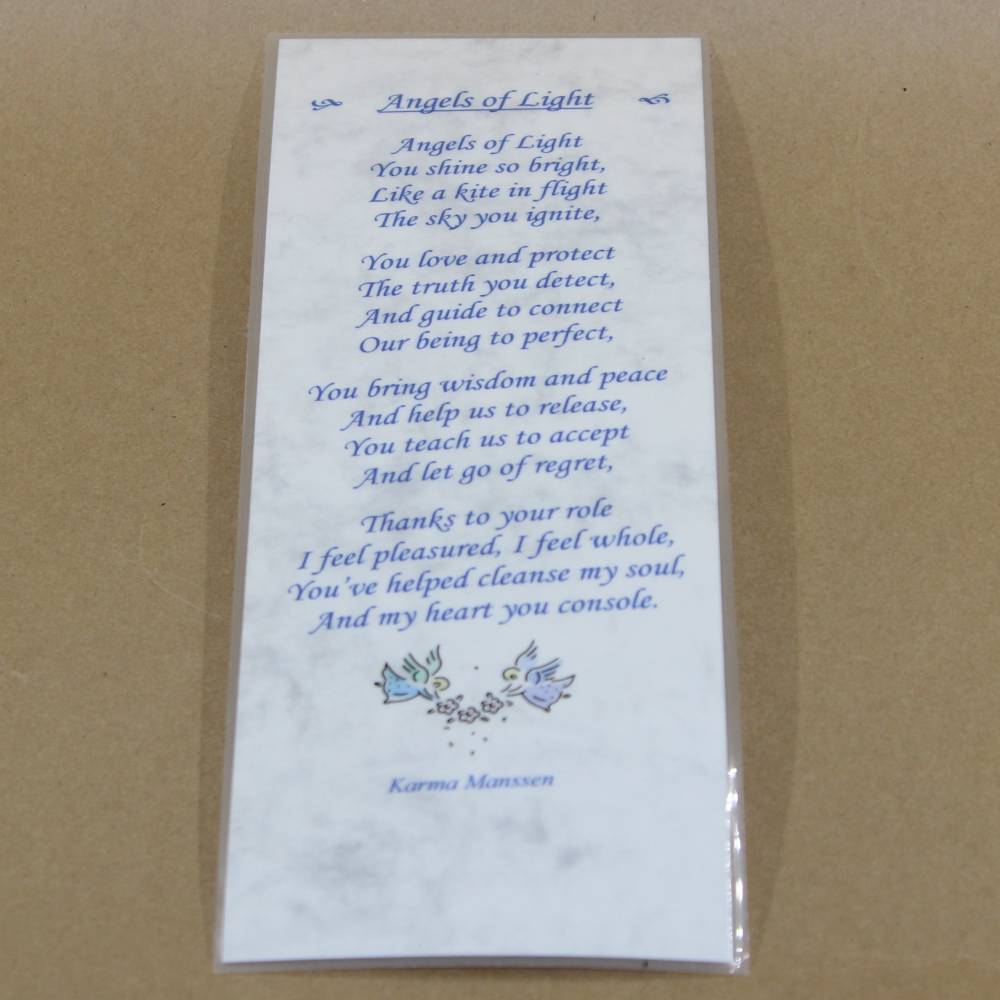 Angels of Light
Angels of Light
You shine so bright,
Like a kite in flight
The sky you ignite,
You love and protect
The truth you detect,
And guide to connect
Our being to perfect,
You bring wisdom and peace
And help us to release,
You teach us to accept
And let go of regret,
Thanks to your role
I feel pleasured, I feel whole,
You've helped cleanse my soul,
And my heart you console.
Karma Manssen